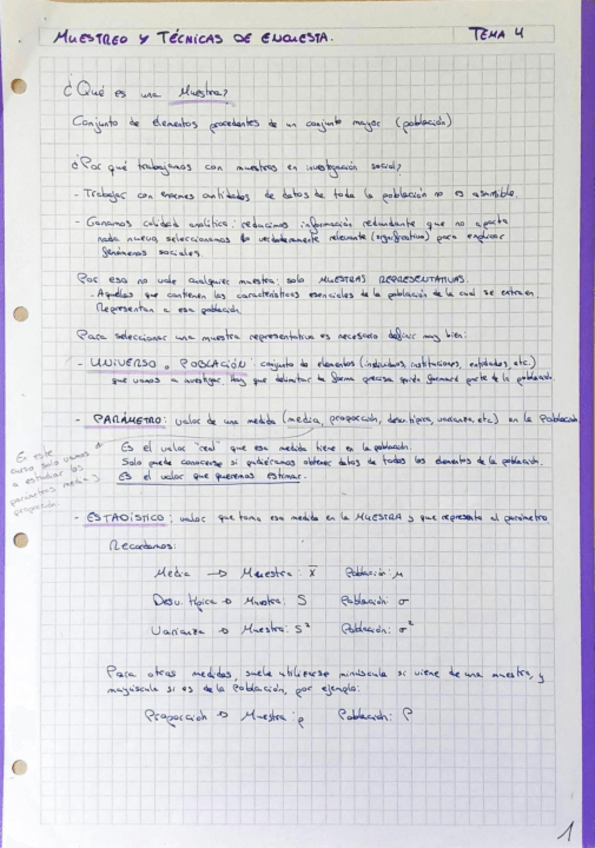 MUESTREO Y TÉCNICAS DE ENCUESTA.
TEMA 4
¿Qué es una Muestra?
Conjunto de elementos procedentes de un conjunto mayor (población)
¿Por qué trabajamos con muestras en investigación social?
- Trabajar con enormes cantidades de datos de toda la población no es asumible.
- Ganamos calidad analítica: reducimos información redundante que no aporta
nada nuevo, seleccionamos lo verdaderamente relevante (significativo) para explicar
fenómenos sociales.
Por eso no vale cualquier muestra: solo MUESTRAS REPRESENTATIVAS.
- Aquellas que contienen las características esenciales de la población de la cual se extraen.
Representan a esa población.
Para seleccionar una muestra representativa es necesario definir muy bien:
- UNIVERSO o POBLACIÓN: conjunto de elementos (individuos, instituciones, entidades, etc.)
que vamos a investigar. Hay que delimitar de forma precisa quién formará parte de la población.
- PARÁMETRO: valor de una medida (media, proporción, desv. típica, varianza, etc) en la Población.
Es el valor "real" que esa medida tiene en la población.
Solo puede conocerse si pudiéramos obtener datos de todos los elementos de la población.
Es el valor que queremos estimar.
En este
curso solo vamos
a estudiar los
parámetros media y
proporción.
- ESTADÍSTICO: valor que toma esa medida en la MUESTRA y que representa al parámetro
Recordamos:
Media → Muestra: x̄ Población: μ
Desv. típica → Muestra: S Población: σ
Varianza → Muestra: S² Población: σ²
Para otras medidas, suele utilizarse minúscula si viene de una muestra, y
mayúscula si es de la Población, por ejemplo:
Proporción → Muestra: p Población: P
1